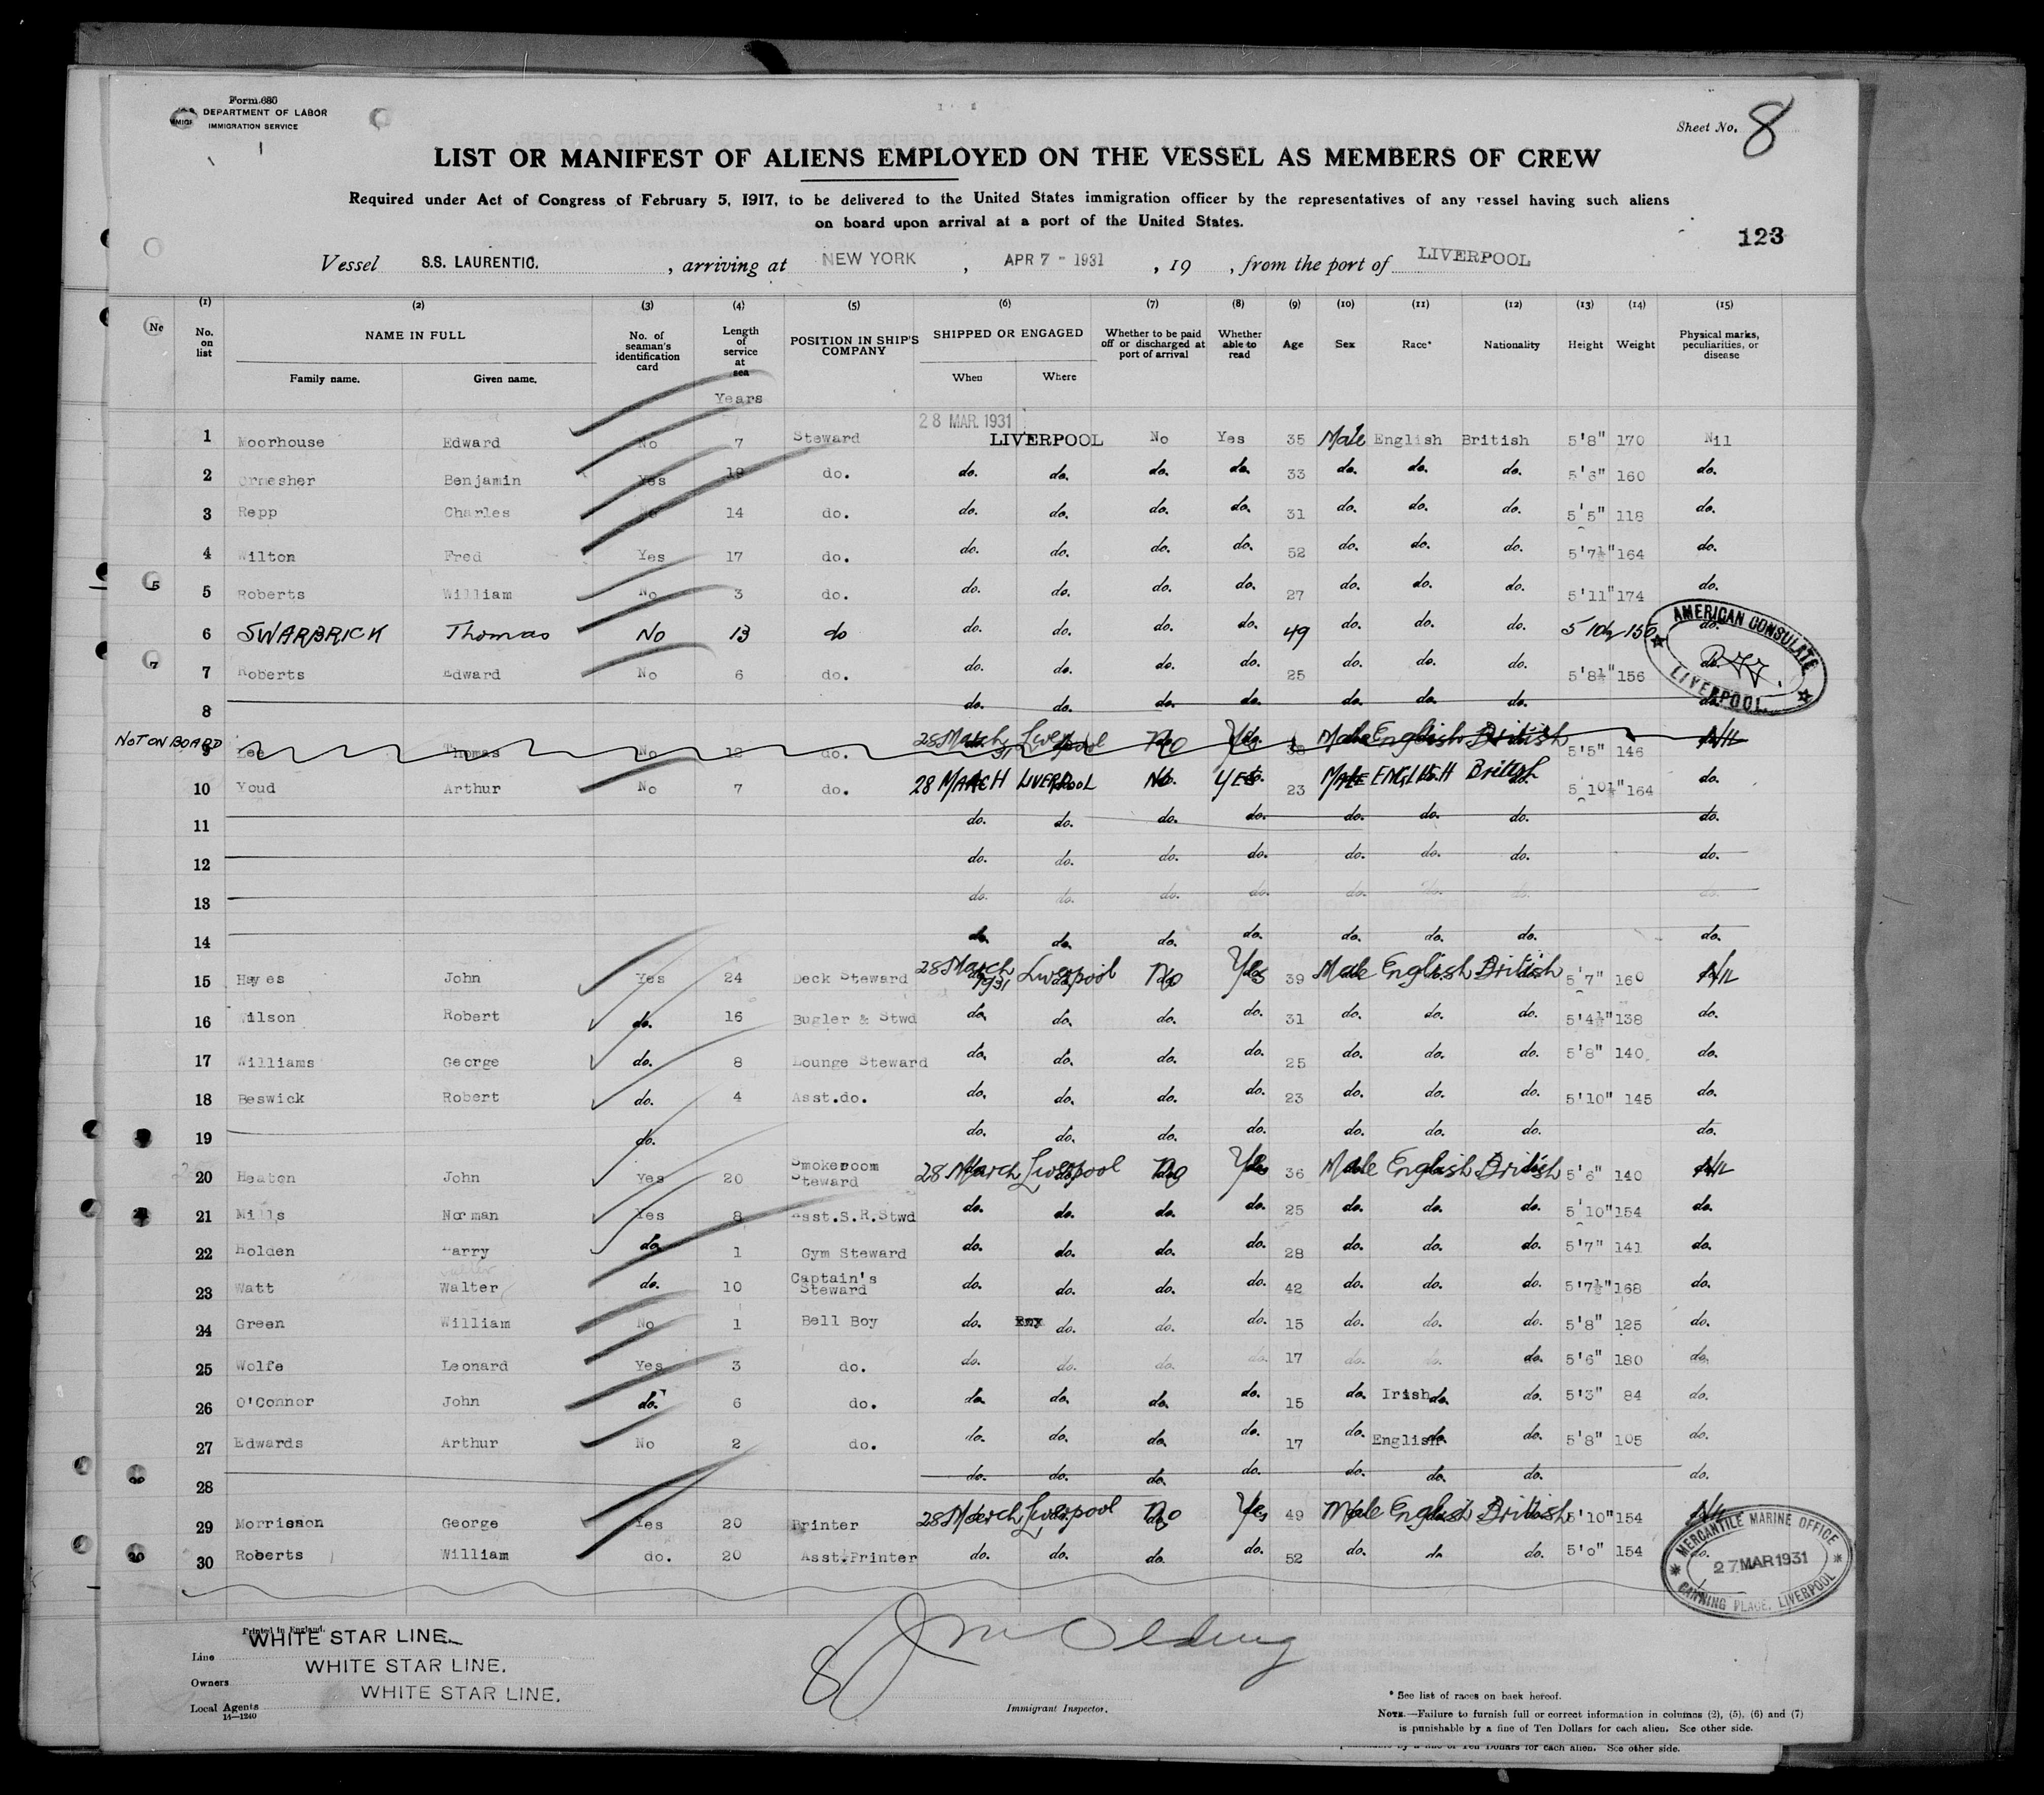 Form 680
DEPARTMENT OF LABOR
IMMIGRATION SERVICE
Sheet No. 8
LIST OR MANIFEST OF ALIENS EMPLOYED ON THE VESSEL AS MEMBERS OF CREW
Required under Act of Congress of February 5, 1917, to be delivered to the United States immigration officer by the representatives of any vessel having such aliens
on board upon arrival at a port of the United States.
123
Vessel S.S. LAURENTIC. , arriving at NEW YORK , APR 7 - 1931 , 19 , from the port of LIVERPOOL
(1) (2) (3) (4) (5) (6) (7) (8) (9) (10) (11) (12) (13) (14) (15)
No. on list NAME IN FULL Family name. Given name. No. of seaman's identification card Length of service at sea POSITION IN SHIP'S COMPANY SHIPPED OR ENGAGED When Where Whether to be paid off or discharged at port of arrival Whether able to read Age Sex Race* Nationality Height Weight Physical marks, peculiarities, or disease
Years
28 MAR. 1931
1 Moorhouse Edward No 7 Steward LIVERPOOL No Yes 35 Male English British 5'8" 170 Nil
2 Ormesher Benjamin Yes 19 do. do. do. do. do. 33 do. do. do. 5'6" 160 do.
3 Repp Charles No 14 do. do. do. do. do. 31 do. do. do. 5'5" 118 do.
4 Wilton Fred Yes 17 do. do. do. do. do. 52 do. do. do. 5'7½" 164 do.
5 Roberts William No 3 do. do. do. do. do. 27 do. do. do. 5'11" 174 do.
6 SWARBRICK Thomas No 13 do do. do. do. do. 49 do. do. do. 5 10½ 156 do.
7 Roberts Edward No 6 do. do. do. do. do. 25 do. do. do. 5'8½" 156 do.
AMERICAN CONSULATE LIVERPOOL
8 do. do. do. do. do. do. do. do.
NOT ON BOARD
9 Lee Thomas No 12 do. 28 March 31 Liverpool No Yes 38 Male English British 5'5" 146 Nil
10 Youd Arthur No 7 do. 28 MARCH LIVERPOOL No. YES 23 MALE ENGLISH British 5'10½" 164 do.
11 do. do. do. do. do. do. do. do.
12 do. do. do. do. do. do. do. do.
13 do. do. do. do. do. do. do. do.
14 do. do. do. do. do. do. do. do.
15 Hayes John Yes 24 Deck Steward 28 March 1931 Liverpool No Yes 39 Male English British 5'7" 160 Nil
16 Wilson Robert do. 16 Bugler & Stwd do. do. do. do. 31 do. do. do. 5'4½" 138 do.
17 Williams George do. 8 Lounge Steward do. do. do. do. 25 do. do. do. 5'8" 140 do.
18 Beswick Robert do. 4 Asst.do. do. do. do. do. 23 do. do. do. 5'10" 145 do.
19 do. do. do. do. do. do. do. do. do.
20 Heaton John Yes 20 Smokeroom Steward 28 March Liverpool No Yes 36 Male English British 5'6" 140 Nil
21 Mills Norman Yes 8 Asst.S.R.Stwd do. do. do. do. 25 do. do. do. 5'10" 154 do.
22 Holden Harry do. 1 Gym Steward do. do. do. do. 28 do. do. do. 5'7" 141 do.
23 Watt Walter do. 10 Captain's Steward do. do. do. do. 42 do. do. do. 5'7½" 168 do.
24 Green William No 1 Bell Boy do. do. do. do. 15 do. do. do. 5'8" 125 do.
25 Wolfe Leonard Yes 3 do. do. do. do. do. 17 do. do. do. 5'6" 180 do.
26 O'Connor John do. 6 do. do. do. do. do. 15 do. Irish do. do. 5'3" 84 do.
27 Edwards Arthur No 2 do. do. do. do. do. 17 do. English do. do. 5'8" 105 do.
28 do. do. do. do. do. do. do. do.
29 Morrisson George Yes 20 Printer 28 March Liverpool No Yes 49 Male English British 5'10" 154 Nil
30 Roberts William do. 20 Asst.Printer do. do. do. do. 52 do. do. do. 5'0" 154 do.
MERCANTILE MARINE OFFICE 27 MAR 1931 CANNING PLACE, LIVERPOOL
Printed in England.
Line WHITE STAR LINE.
Owners WHITE STAR LINE.
Local Agents WHITE STAR LINE.
14—1240
8
Immigrant Inspector.
* See list of races on back hereof.
NOTE.—Failure to furnish full or correct information in columns (2), (5), (6) and (7)
is punishable by a fine of Ten Dollars for each alien. See other side.
punishable by a fine of Ten Dollars for each alien. See other side.